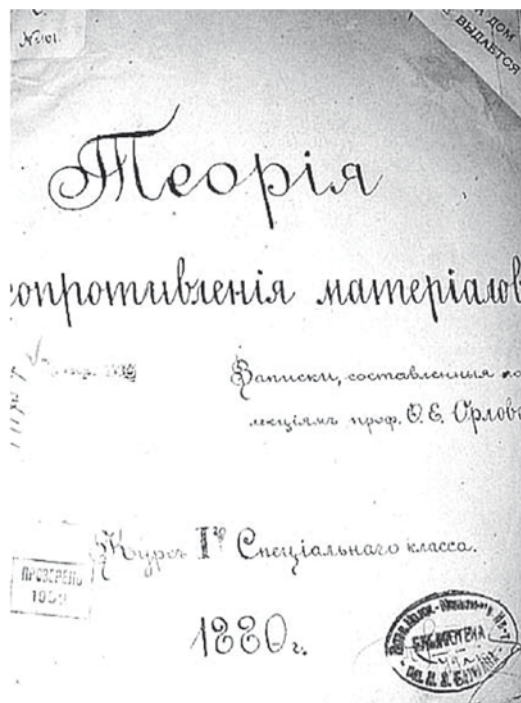 № 101.
ДОМ
ВЫДАЕТСЯ
Теорія
сопротивленія матеріалов
Записки, составленныя по
лекціямъ проф. Ѳ. Е. Орлова
Курсъ Iго Спеціальнаго класса.
ПРОВЕРЕНО
1880 г.
БИБЛИОТЕКА